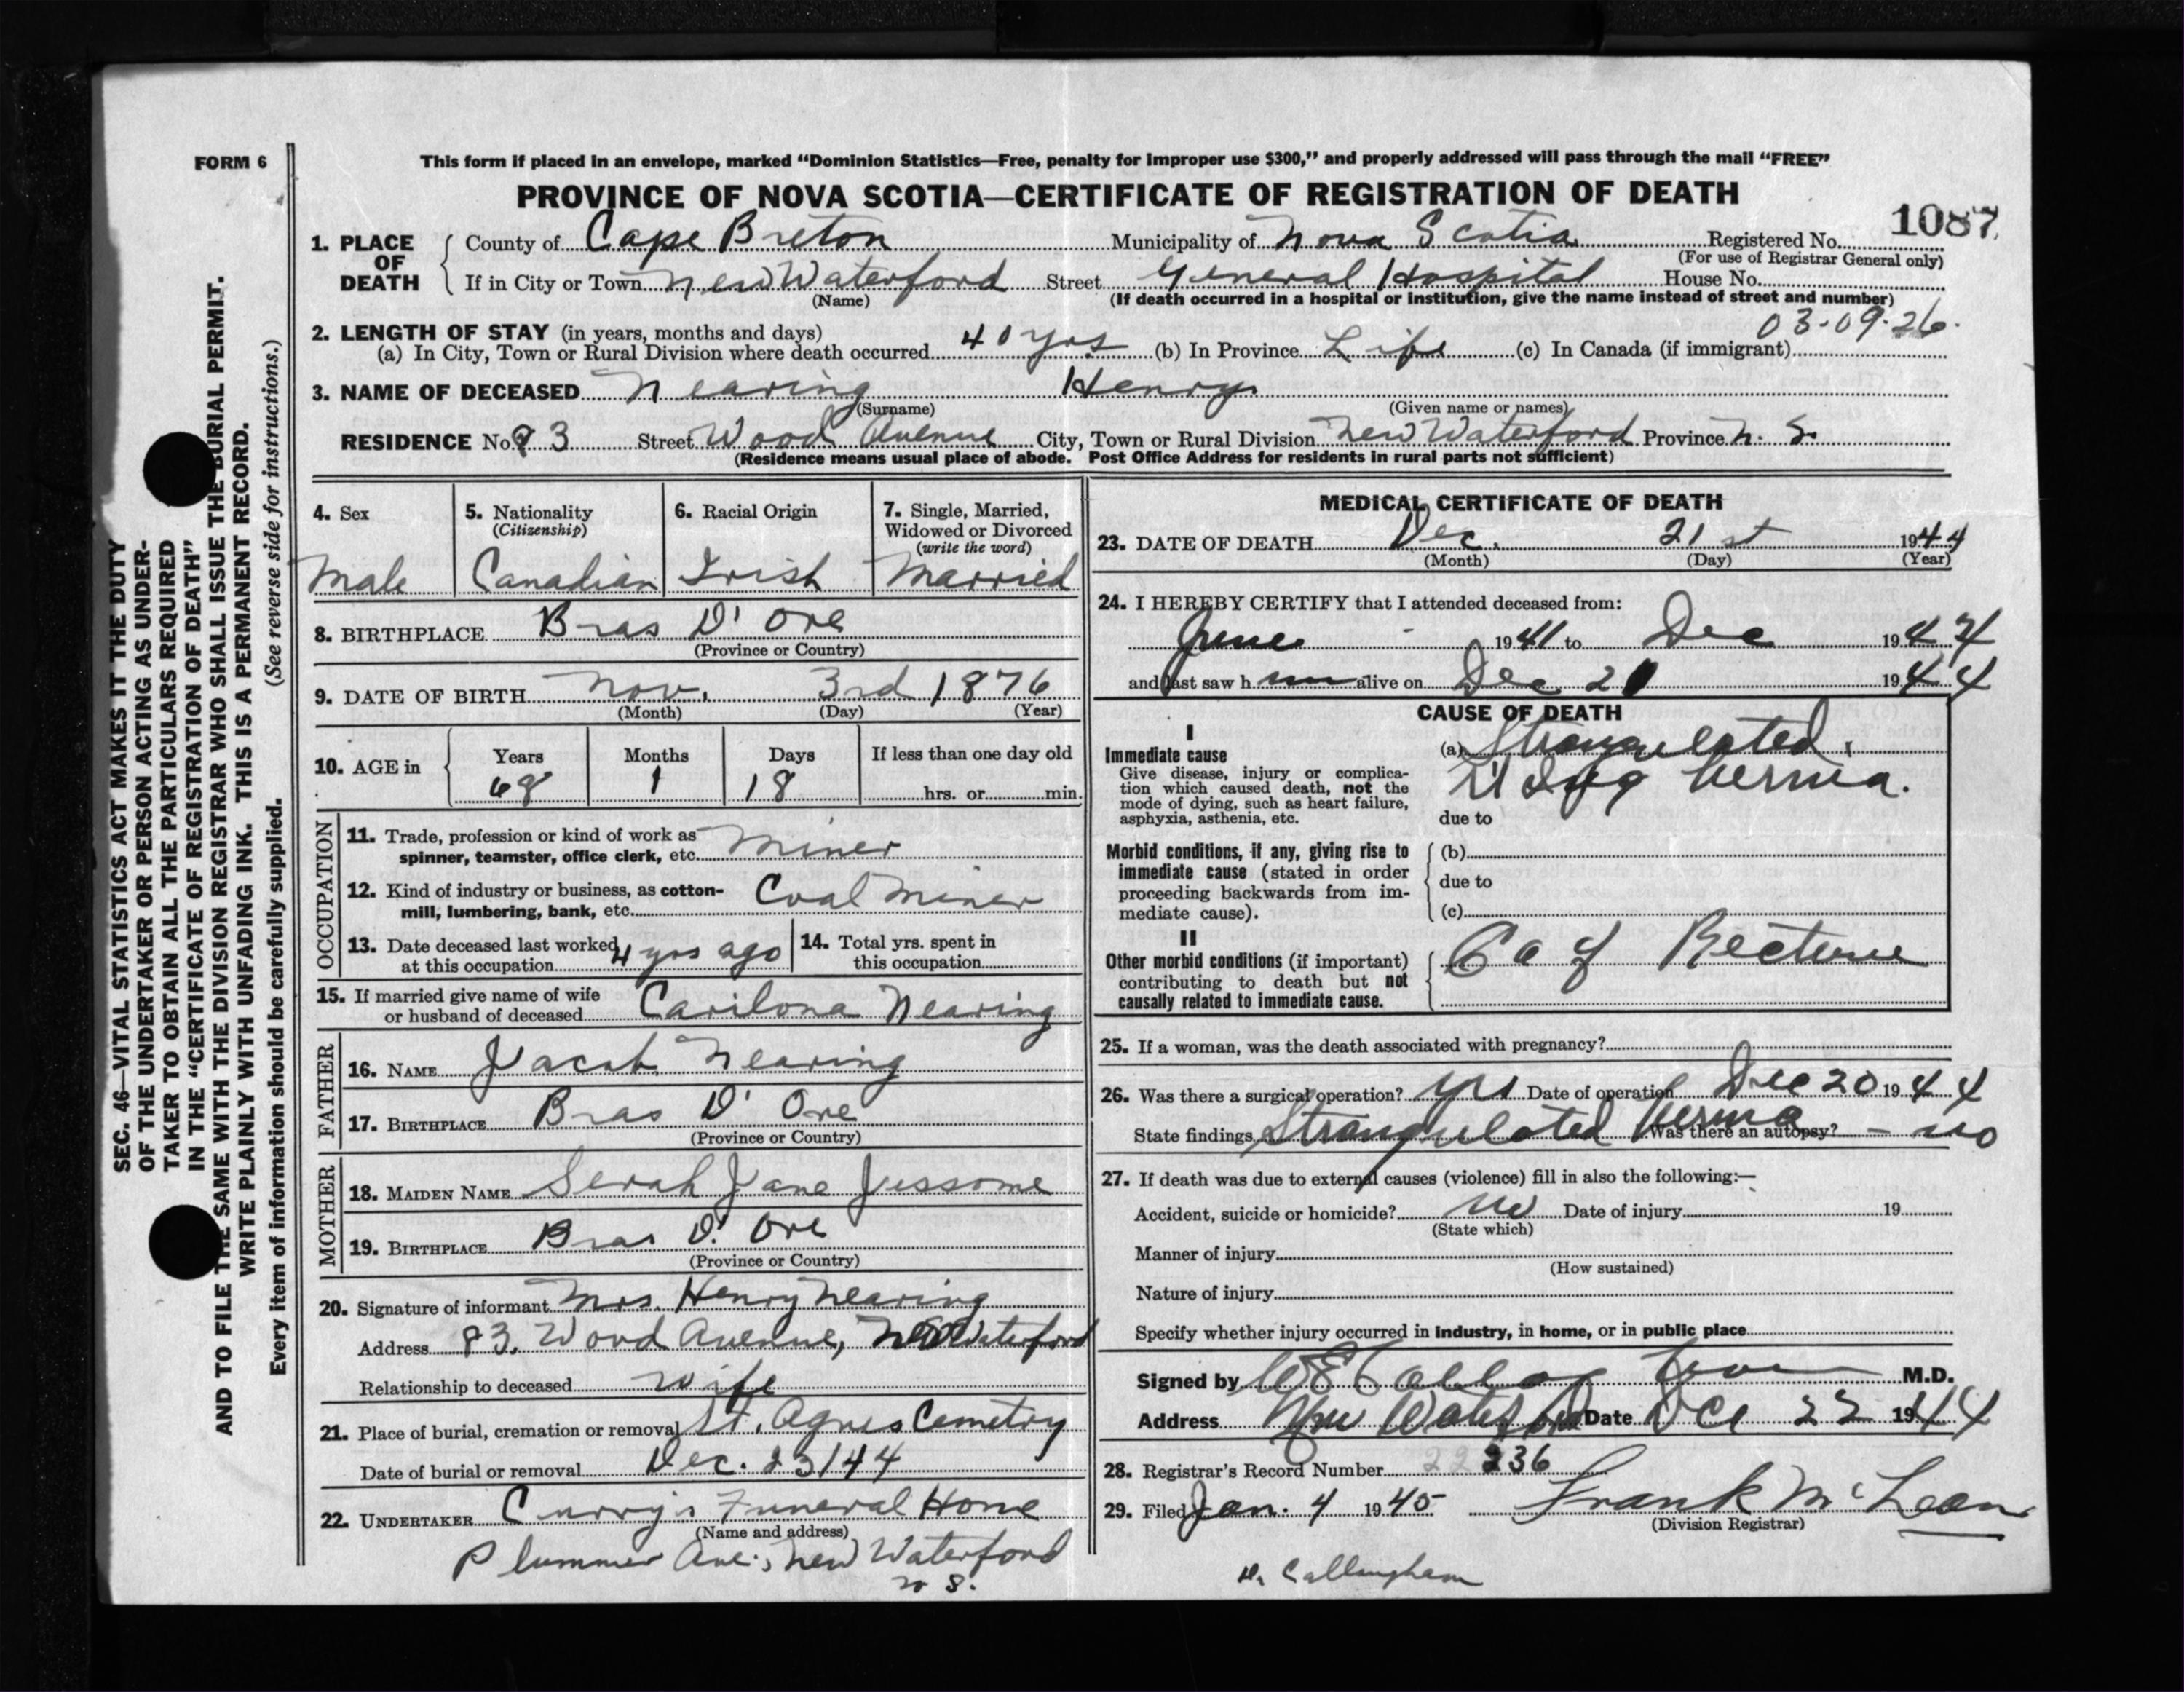 FORM 6
This form if placed in an envelope, marked “Dominion Statistics—Free, penalty for improper use $300,” and properly addressed will pass through the mail “FREE”
PROVINCE OF NOVA SCOTIA—CERTIFICATE OF REGISTRATION OF DEATH
1087
1. PLACE OF DEATH County of Cape Breton Municipality of Nova Scotia Registered No.
(For use of Registrar General only)
If in City or Town New Waterford Street General Hospital House No.
(Name) (If death occurred in a hospital or institution, give the name instead of street and number)
03-09-26
2. LENGTH OF STAY (in years, months and days)
(a) In City, Town or Rural Division where death occurred 40 yrs (b) In Province Life (c) In Canada (if immigrant)
3. NAME OF DECEASED Nearing Henry
(Surname) (Given name or names)
RESIDENCE No. 83 Street Wood Avenue City, Town or Rural Division New Waterford Province N. S.
(Residence means usual place of abode. Post Office Address for residents in rural parts not sufficient)
4. Sex 5. Nationality (Citizenship) 6. Racial Origin 7. Single, Married, Widowed or Divorced (write the word)
Male Canadian Irish Married
8. BIRTHPLACE Bras D' Ore
(Province or Country)
9. DATE OF BIRTH Nov. 3rd 1876
(Month) (Day) (Year)
10. AGE in Years Months Days If less than one day old
68 1 18 hrs. or min.
OCCUPATION
11. Trade, profession or kind of work as
spinner, teamster, office clerk, etc. Miner
12. Kind of industry or business, as cotton-
mill, lumbering, bank, etc. Coal Miner
13. Date deceased last worked
at this occupation 4 yrs ago
14. Total yrs. spent in
this occupation
15. If married give name of wife
or husband of deceased Carilona Nearing
FATHER
16. NAME Jacob Nearing
17. BIRTHPLACE Bras D' Ore
(Province or Country)
MOTHER
18. MAIDEN NAME Serah Jane Jessome
19. BIRTHPLACE Bras D' Ore
(Province or Country)
20. Signature of informant Mrs. Henry Nearing
Address 83, Wood Avenue, New Waterford
Relationship to deceased wife
21. Place of burial, cremation or removal St. Agnes Cemetry
Date of burial or removal Dec. 23/44
22. UNDERTAKER Curry's Funeral Home
(Name and address)
Plummer Ave., New Waterford
N S.
MEDICAL CERTIFICATE OF DEATH
23. DATE OF DEATH Dec. 21st 1944
(Month) (Day) (Year)
24. I HEREBY CERTIFY that I attended deceased from:
June - 1941 to Dec 1944
and last saw h im alive on Dec 20 1944
CAUSE OF DEATH
I
Immediate cause
Give disease, injury or complica-
tion which caused death, not the
mode of dying, such as heart failure,
asphyxia, asthenia, etc.
(a) Strangulated
hernia.
due to
Morbid conditions, if any, giving rise to
immediate cause (stated in order
proceeding backwards from im-
mediate cause).
(b)
due to
(c)
II
Other morbid conditions (if important)
contributing to death but not
causally related to immediate cause.
Ca of Rectum
25. If a woman, was the death associated with pregnancy?
26. Was there a surgical operation? yes Date of operation Dec 20 1944
State findings Strangulated hernia Was there an autopsy? - no
27. If death was due to external causes (violence) fill in also the following:—
Accident, suicide or homicide? no Date of injury 19
(State which)
Manner of injury
(How sustained)
Nature of injury
Specify whether injury occurred in industry, in home, or in public place
Signed by M.D.
Address New Waterford Date Dec 22 1944
28. Registrar's Record Number 236
29. Filed Jan. 4 1945 Frank McLean
(Division Registrar)
Callangham
SEC. 46—VITAL STATISTICS ACT MAKES IT THE DUTY
OF THE UNDERTAKER OR PERSON ACTING AS UNDER-
TAKER TO OBTAIN ALL THE PARTICULARS REQUIRED
IN THE “CERTIFICATE OF REGISTRATION OF DEATH”
AND TO FILE THE SAME WITH THE DIVISION REGISTRAR WHO SHALL ISSUE THE BURIAL PERMIT.
WRITE PLAINLY WITH UNFADING INK. THIS IS A PERMANENT RECORD.
Every item of information should be carefully supplied. (See reverse side for instructions.)